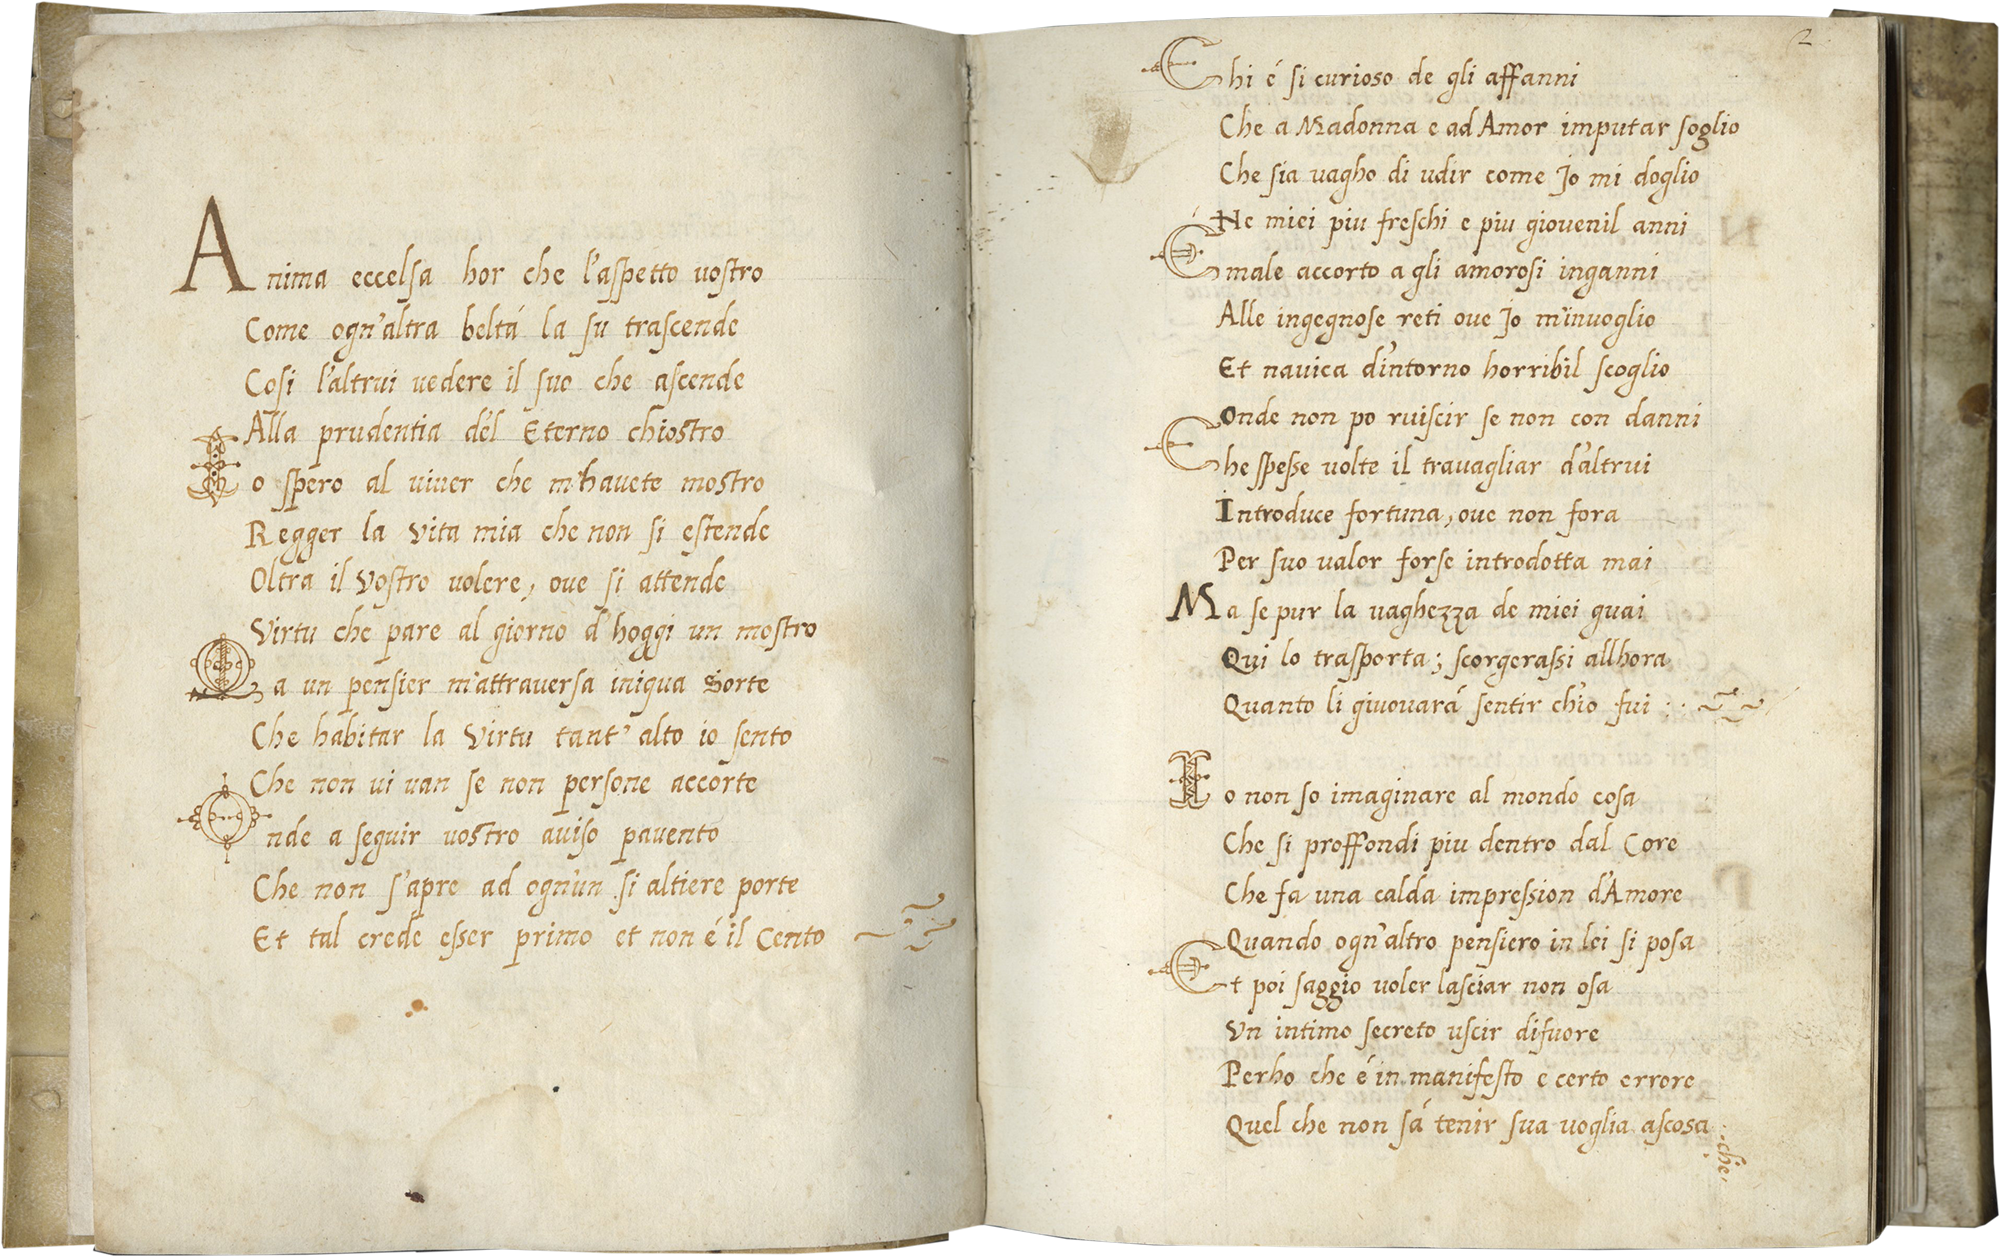 Anima eccelsa hor che l'aspetto vostro
Come ogn'altra beltá la su trascende
Cosi l'altrui vedere il suo che ascende
Alla prudentia del Eterno chiostro
Io spero al viver che m'havete mostro
Regger la Vita mia che non si estende
Oltra il Vostro volere, oue si attende
Virtu che pare al giorno d'hoggi un mostro
Qa un pensier m'attraversa iniqua Sorte
Che habitar la Virtu tant' alto io sento
Che non ui uan se non persone accorte
Onde a seguir uostro auiso pauento
Che non s'apre ad ogn'un si altiere porte
Et tal crede esser primo et non é il Cento
2
Chi é si curioso de gli affanni
Che a Madonna e ad Amor imputar soglio
Che sia uagho di udir come Jo mi doglio
Ne miei piu freschi e piu giouenil anni
E male accorto a gli amorosi inganni
Alle ingegnose reti oue Jo m'inuoglio
Et nauica d'intorno horribil scoglio
Onde non po ruiscir se non con danni
Che spesse uolte il trauagliar d'altrui
Introduce fortuna, oue non fora
Per suo ualor forse introdotta mai
Ma se pur la uaghezza de miei guai
Qui lo trasporta; scorgerassi allhora
Quanto li giuouará sentir ch'io fui
Io non so imaginare al mondo cosa
Che si proffondi piu dentro dal Core
Che fa una calda impression d'Amore
Quando ogn'altro pensiero in lei si posa
Et poi saggio uoler lasciar non osa
Vn intimo secreto uscir difuore
Perho che é in manifesto e certo errore
Quel che non sá tenir sua uoglia ascosa
che